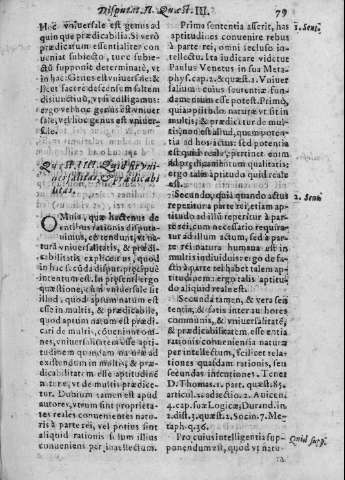 Disputat. II. Quæst. III. 79
Hoc vniuersale est genus ad
quin que prædicabilia. Si verò
prædicatum essentialiter con
ueniat subiecto, ture subie-
ctũ supponit determinatè, vt
in hac: Genus est vniuersale: &
licet facere descensum saltem
disiunctiuũ, vt si colligamus:
ergo vel hoc genus est vniuer
sale, vel hoc genus est vniuer-
sale.
Quæst. III. Quid sit vni
uersalitas, & prædicabi
litas.
OMnia, quæ hactenus de
entibus rationis disputa-
uimus, eò tendunt, vt na-
tura vniuersalitatis, & prædi-
cabilitatis explicetur, quod
in hac secũda disput. præcipuè
intentum est. In præsenti ergo
quæstione, cum vniuersale sit
illud, quod aptum natum est
esse in multis, & prædicabile,
quod aptum natum est prædi-
cari de multis, conueniũt om-
nes, vniuersalitatem esse apti-
tudinem quamdam naturæ ad
existendum in multis; & præ-
dicabilitatem esse aptitudinẽ
naturæ, vt de multis prædice-
tur. Dubium tamen est apud
autores, vtrum sint proprieta-
tes reales conuenientes natu-
ris à parte rei, vel potius sint
aliquid rationis solum illis
conueniens per intellectum.
Prima sententia asserit, has
aptitudines conuenire rebus
à parte rei, omni secluso in-
tellectu. Ita videtur docuisse
Paulus Venetus in sua Meta-
phys. cap. 2. & quæst. 1. Vniuer
salium: cuius sententiæ fun-
damentum esse potest. Primò,
quia aptitudo naturæ vt sit in
multis, & prædicetur de mul-
tis, non est aliud, quam potentia
ad hos actus: sed potentia
est quid reale, pertinet enim
ad prædicamentum qualitatis:
ergo talis aptitudo quid reale
est.
Secundo, quia quando actus
repetitur a parte rei, etiam apti
tudo ad illũ reperitur à parte
rei, cum necessario requira-
tur ad illum actum, sed à par-
te rei natura humana est in
multis indiuiduis: ergo de fa-
cto à parte rei habet talem ap-
titudinem: ergo talis aptitu-
do aliquid reale est.
Secunda tamen, & vera sen
tentia, & satis inter authores
communis, & vniuersalitatẽ,
& prædicabilitatem esse entia
rationis conuenientia naturæ
per intellectum, scilicet rela-
tiones quasdam rationis, seu
secundas intentiones. Tenet
D. Thomas. 1. part. quæst. 85.
articul. 2. ad lectio. 2. Auicen.
4. cap. suæ Logicæ, Durand. in
1. dist. 3. quæst. 2. Socin. 7. Me-
taph. q. 36.
Pro cuius intelligentia supp-
ponendum est, quod vt natu-
ra
1. Sent.
2. Sent.
Quid supp.